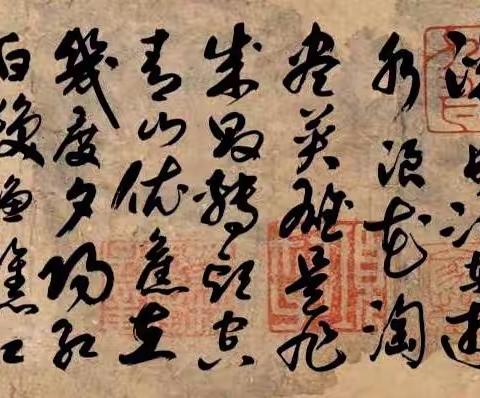 滚長江東逝
水浪花淘
盡英雄是非
成敗轉頭空
青山依舊在
幾度夕陽紅
白髮漁樵江